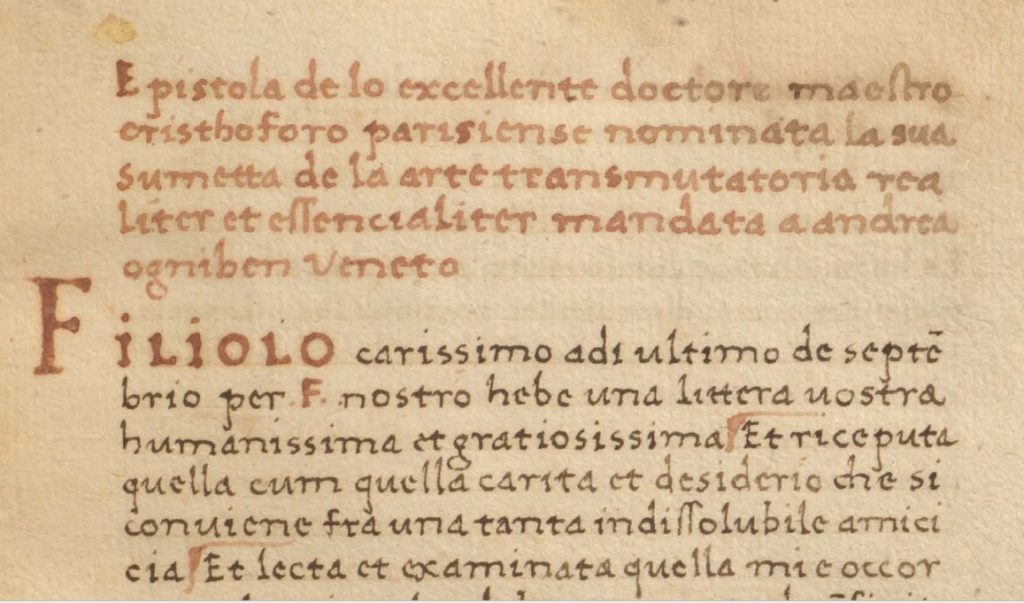 Epistola de lo excellente doctore maestro
cristhoforo parisiense nominata la sua
sumetta de la arte transmutatoria rea
liter et essencialiter mandata a andrea
ogniben veneto
FILIOLO carissimo adi ultimo de septē
brio per F. nostro hebe una littera vostra
humanissima et gratiosissima Et riceputa
quella cum quella carita et desiderio che si
conviene fra una tanta indissolubile amici
cia Et lecta et examinata quella mi e occor